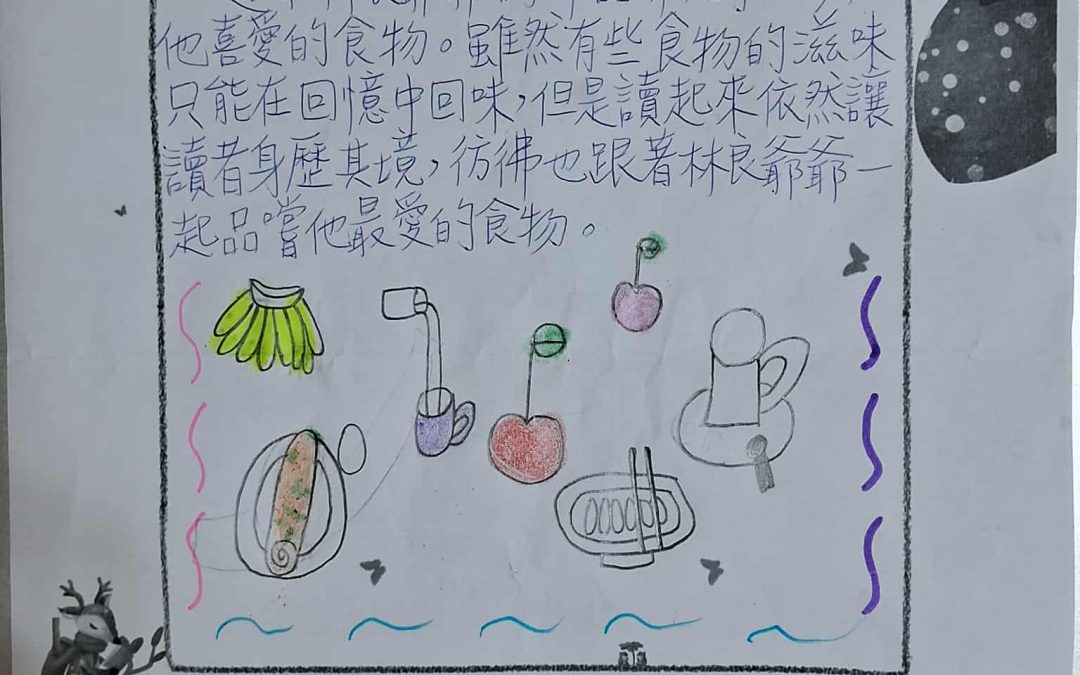 他喜愛的食物。雖然有些食物的滋味
只能在回憶中回味,但是讀起來依然讓
讀者身歷其境,彷彿也跟著林良爺爺一
起品嚐他最愛的食物。